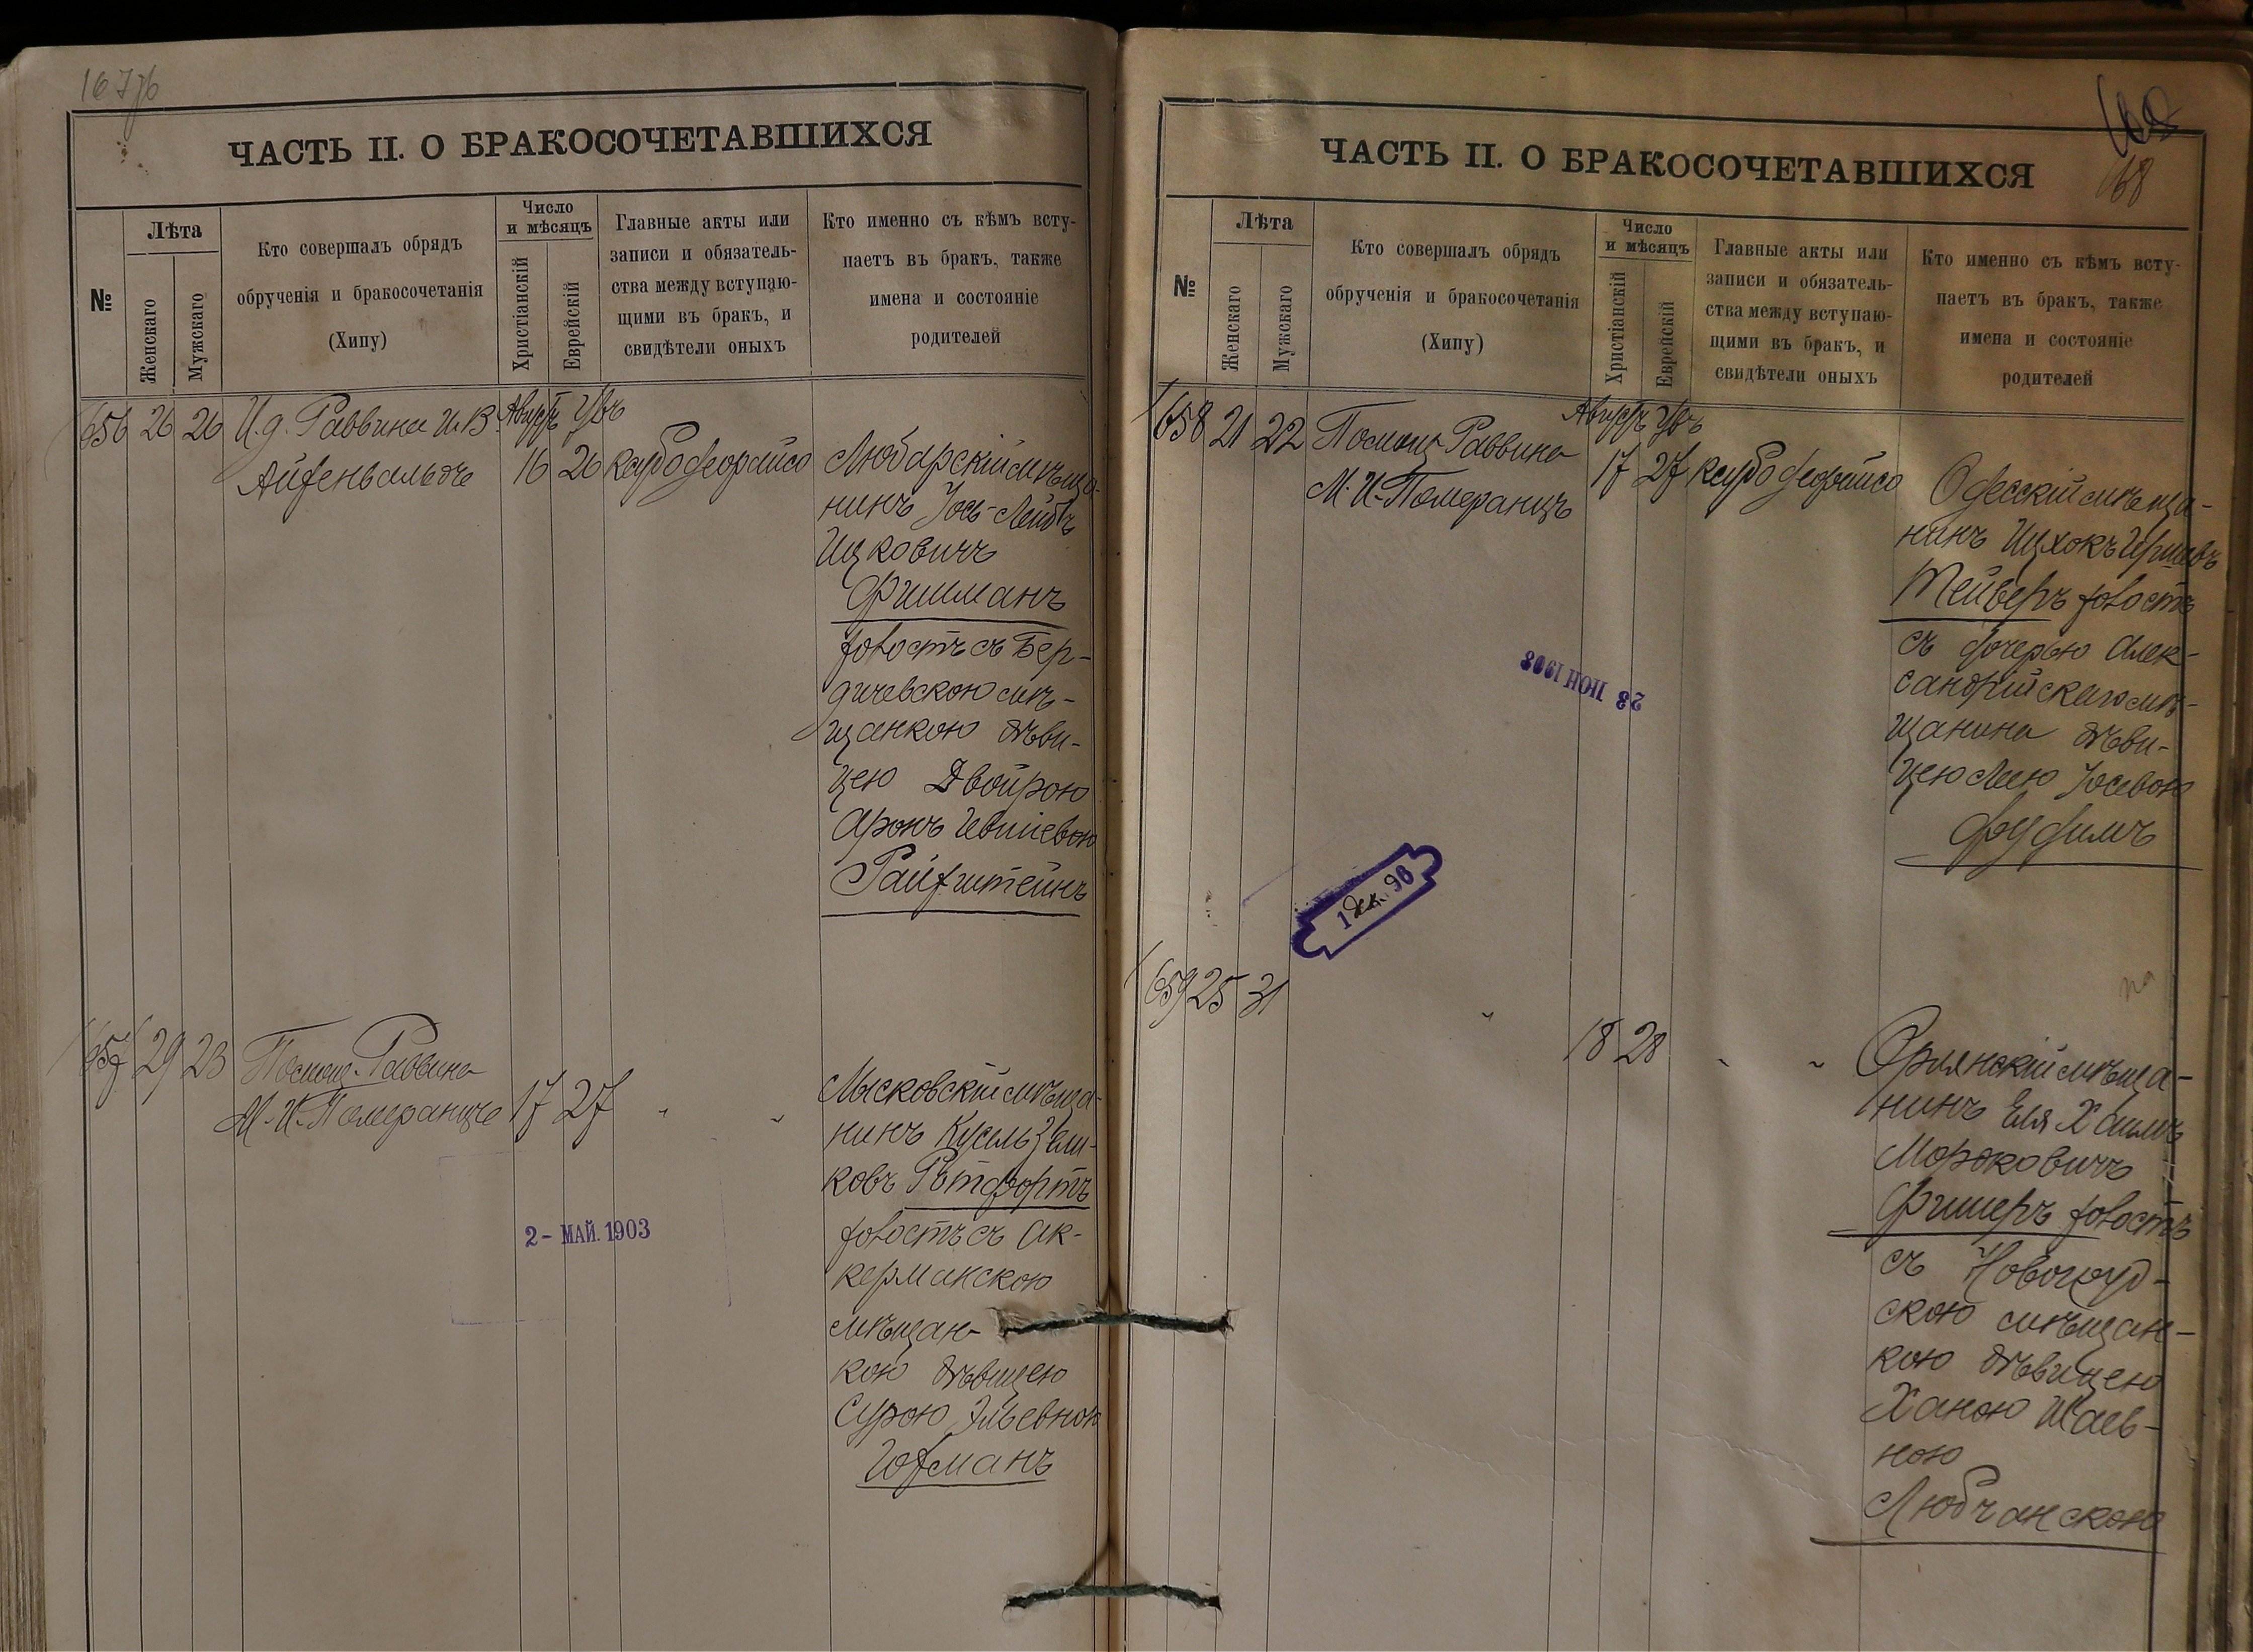 ЧАСТЬ II. О БРАКОСОЧЕТАВШИХСЯ
№
Лѣта
Женскаго
Мужскаго
Кто совершалъ обрядъ
обрученія и бракосочетанія
(Хипу)
Число
и мѣсяцъ
Христіанскій
Еврейскій
Главные акты или
записи и обязатель-
ства между вступаю-
щими въ бракъ, и
свидѣтели оныхъ
Кто именно съ кѣмъ всту-
паетъ въ бракъ, также
имена и состояніе
родителей
656 26 26 И.д. Раввина И.В.
Айзенвальдъ
Августъ
16 26
Любарскій мѣща-
нинъ Іось-Лейбъ
Ицковичъ
Фишманъ
холостъ съ Бер-
дичевскою мѣ-
щанкою дѣви-
цею Двойрою
Аронъ Иевшевою
Райзштейнъ
657 29 23 Помощ. Раввина
М. И. Померанцъ
17 27 " "
Лысковскій мѣща-
нинъ Кусель Зели-
ковъ Ретфортъ
холостъ съ Ак-
керманскою
мѣщан-
кою дѣвицею
Сурою Эльевною
Гофманъ
2 - МАЙ. 1903
ЧАСТЬ II. О БРАКОСОЧЕТАВШИХСЯ
168
№
Лѣта
Женскаго
Мужскаго
Кто совершалъ обрядъ
обрученія и бракосочетанія
(Хипу)
Число
и мѣсяцъ
Христіанскій
Еврейскій
Главные акты или
записи и обязатель-
ства между вступаю-
щими въ бракъ, и
свидѣтели оныхъ
Кто именно съ кѣмъ всту-
паетъ въ бракъ, также
имена и состояніе
родителей
658 21 22 Помощ. Раввина
М. И. Померанцъ
Августъ
17 27
Одесскій мѣща-
нинъ Ицхокъ Гершевъ
Тейверъ холостъ
съ дочерью Алек-
сандрійскаго мѣ-
щанина дѣви-
цею Леею Іосевою
Фудимъ
23 ІЮН 1903
1 Дек. 96
659 25 31 " 18 28 " "
Орлянскій мѣща-
нинъ Еля Хаимъ
Мордковичъ
Фишеръ холостъ
съ Новогруд-
скою мѣщан-
кою дѣвицею
Ханою Шаев-
ною
Любчанскою